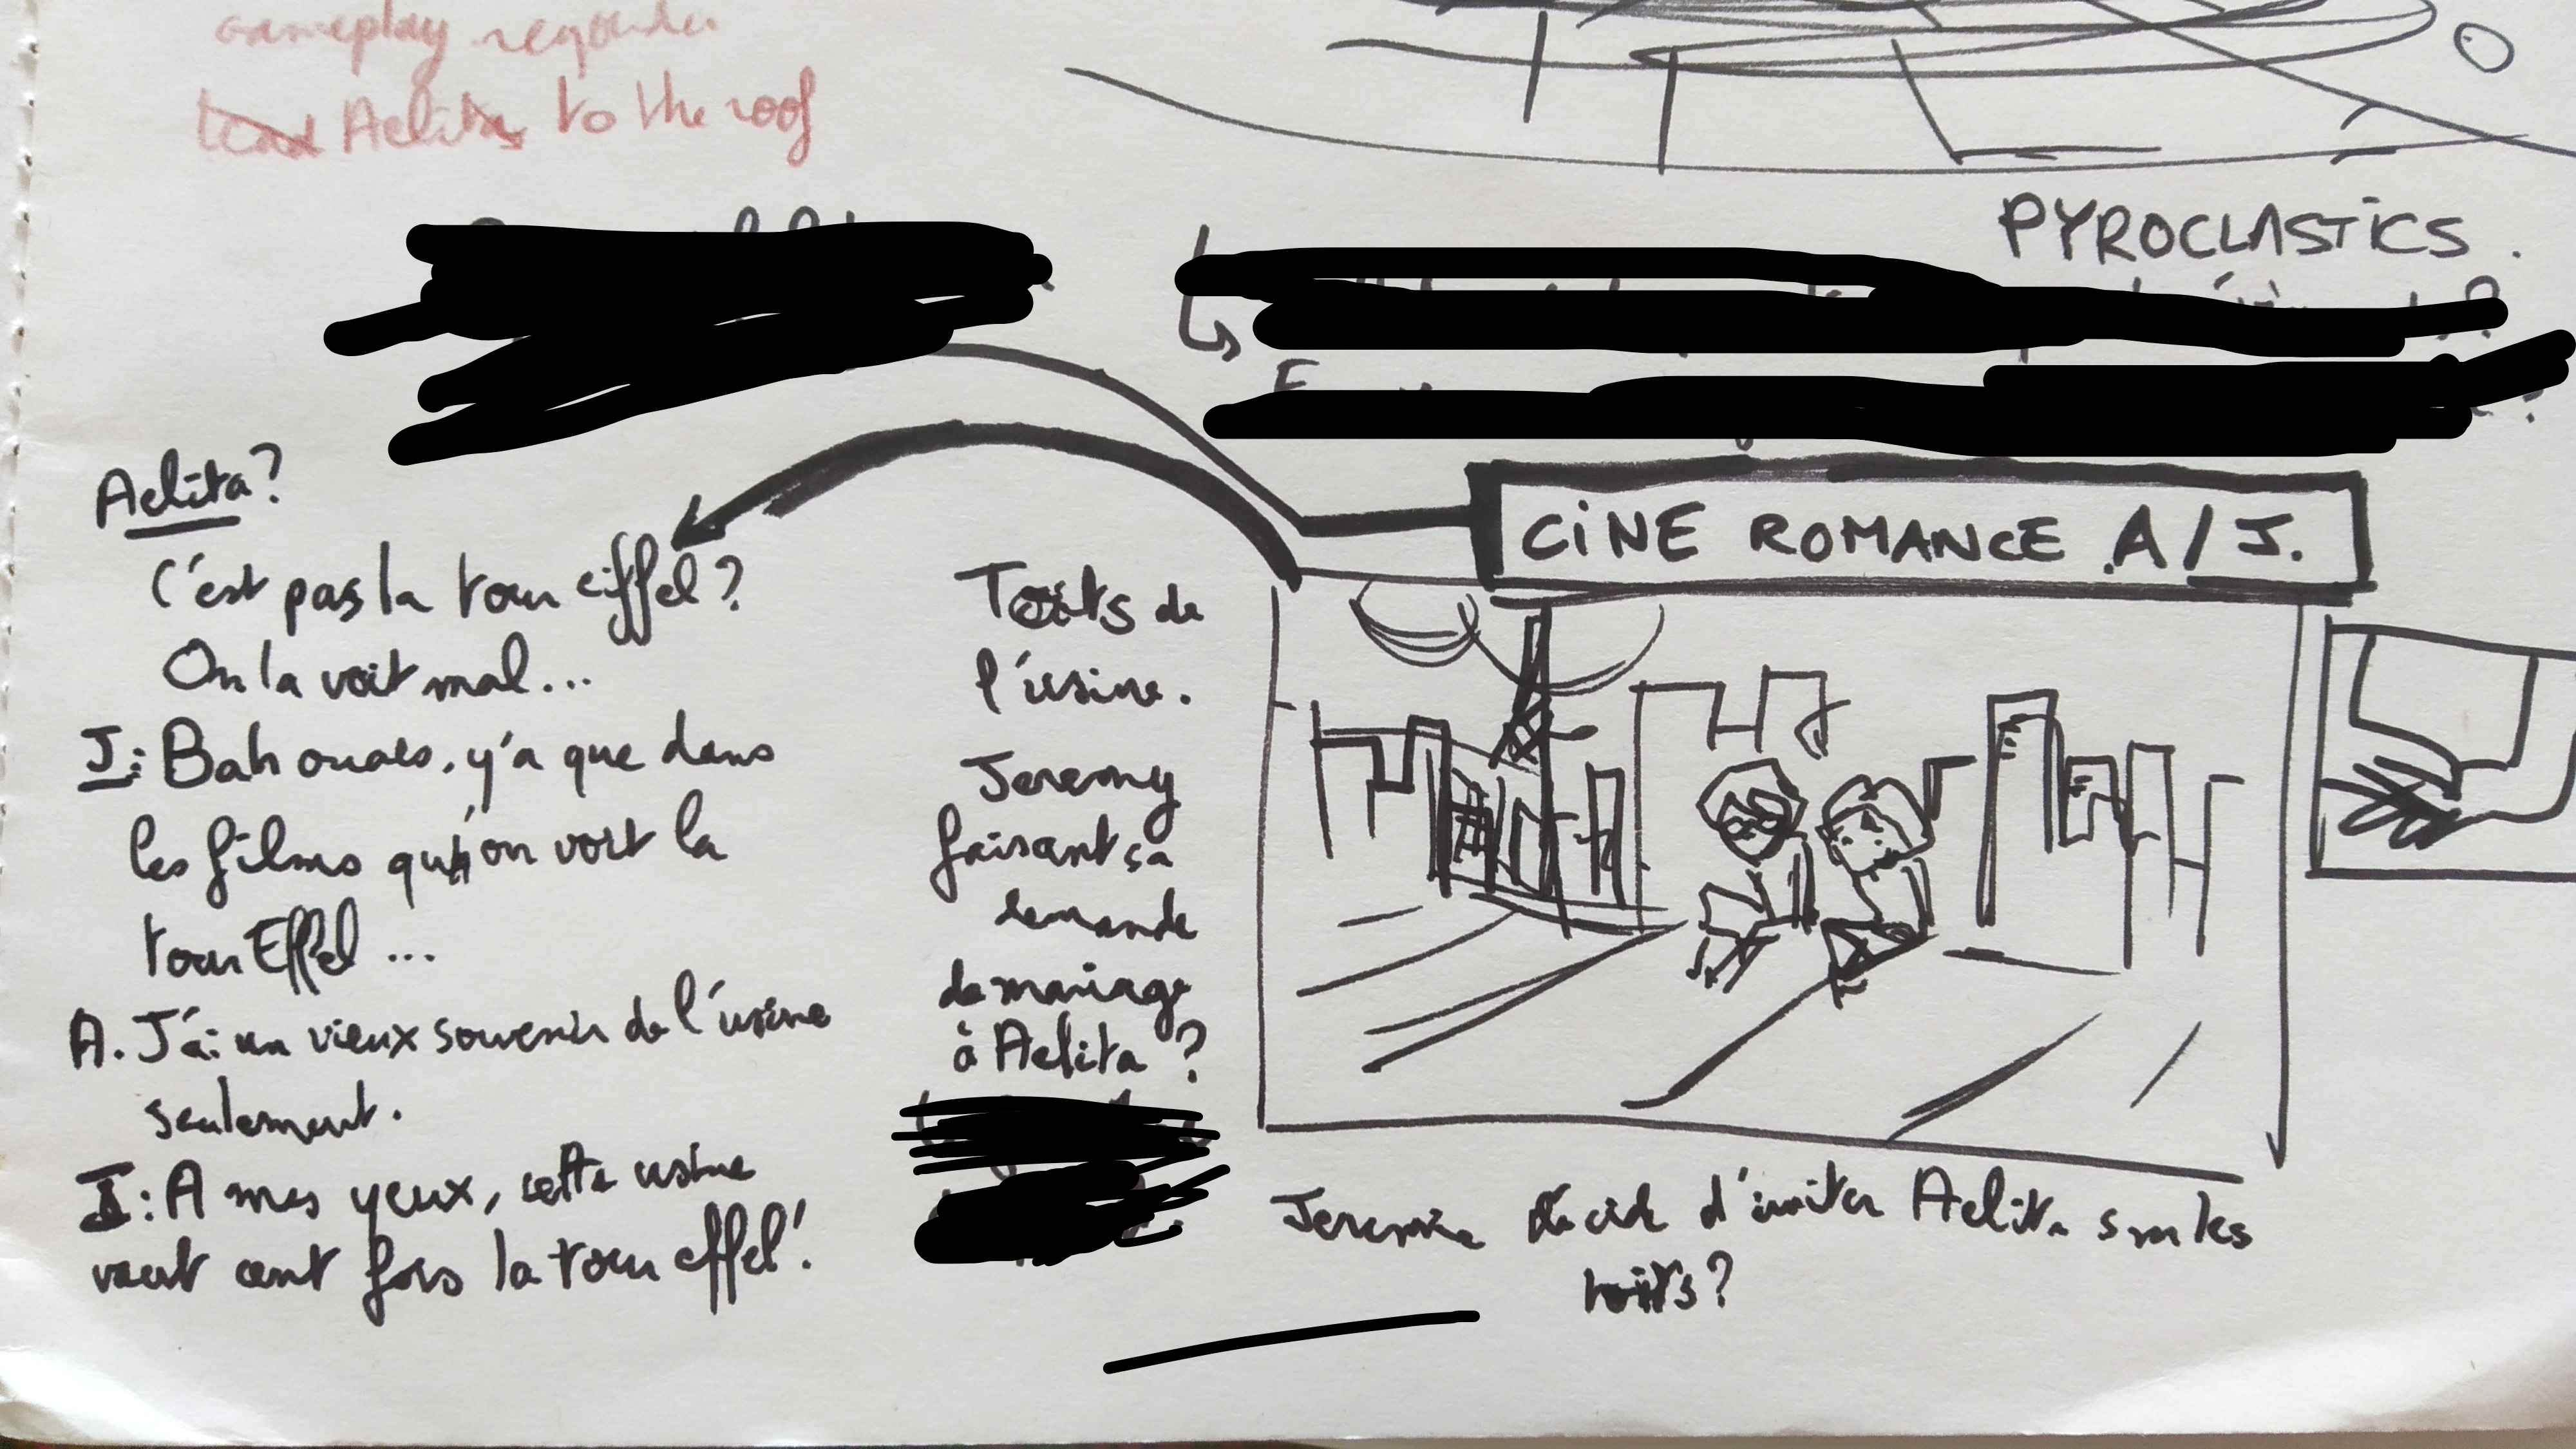 gameplay
lead Aelita to the roof
PYROCLASTICS.
CINE ROMANCE A/J.
Aelita?
C'est pas la tour eiffel?
On la voit mal...
J: Bah ouais, y'a que dans
les films qu'on voit la
tour Effel...
A. J'ai un vieux souvenir de l'usine
seulement.
J: A mes yeux, cette usine
vaut cent fois la tour effel!
Toits de
l'usine.
Jeremy
faisant sa
demande
de mariage
à Aelita?
Jeremie décide d'inviter Aelita sur les
toits?